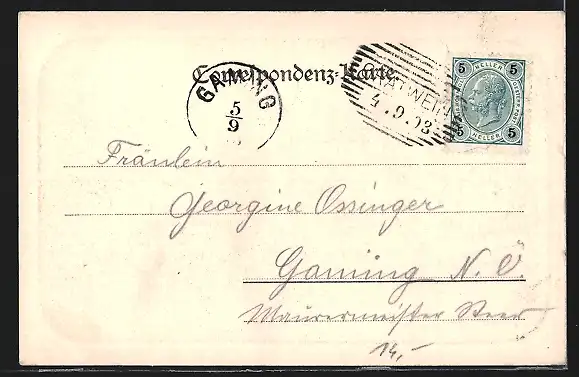 Correspondenz-Karte
GAMING
5
9
GRATWEIN
4.9.03
5 HELLER 5
5 HELLER 5
Fräulein
Georgine Ossinger
Gaming N. Ö.
Maurermeister
14,-